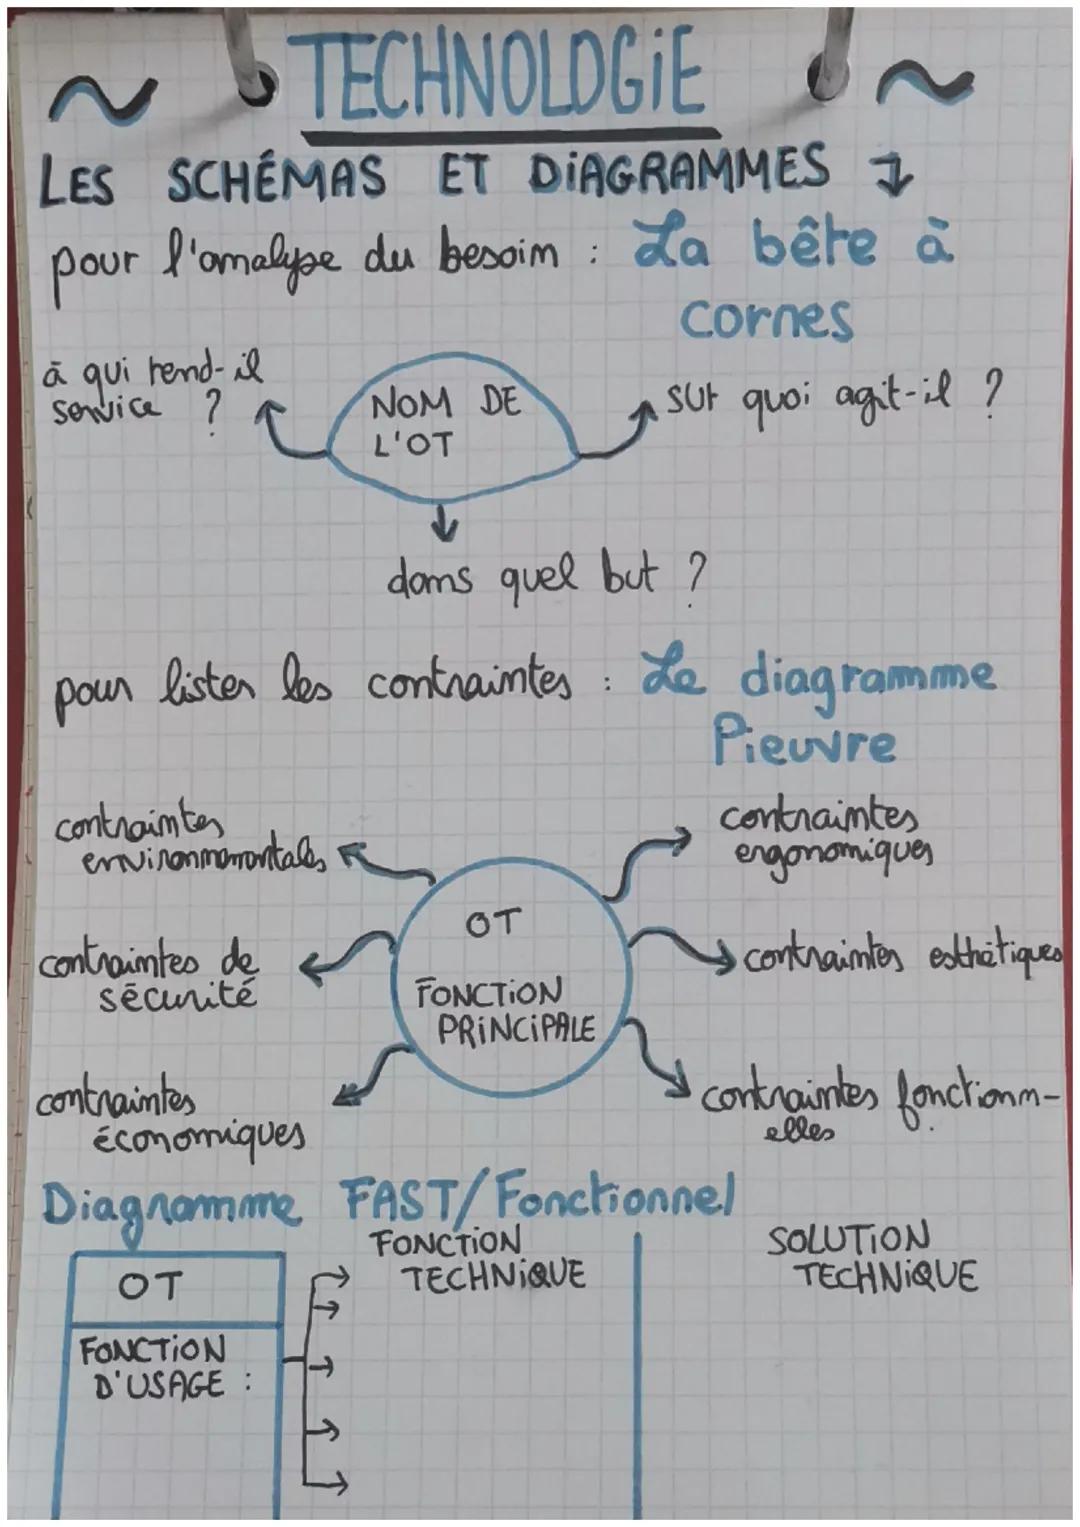 TECHNOLOGIE
LES SCHÉMAS ET DIAGRAMMES
pour l'analyse du besoin : La bête à
cornes
à qui rend-il
service ?
NOM DE
L'OT
sur quoi agit-il ?
dans quel but ?
pour lister les contraintes : Le diagramme
Pieuvre
contraintes
environnementales
contraintes
ergonomiques
OT
FONCTION
PRINCIPALE
contraintes de
sécurité
contraintes esthétiques
contraintes
économiques
contraintes fonctionn-
elles
Diagramme FAST/Fonctionnel
OT
FONCTION
D'USAGE :
FONCTION
TECHNIQUE
SOLUTION
TECHNIQUE